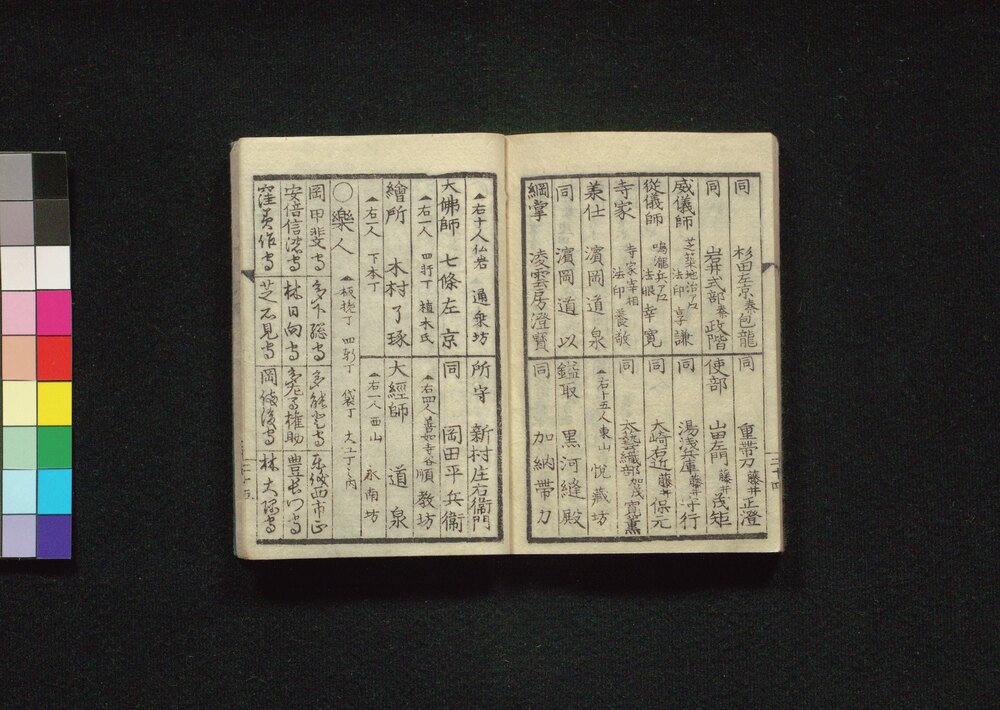 同 杉田左京 秦包龍
同 岩井式部 秦政階
威儀師 芝築地治ア卩 法印 享謙
從儀師 鳴瀧兵ア卩 法眼 幸寛
寺家 寺家宰相 法印 養敬
兼仕 濱岡道泉
同 濱岡道以
綱掌 凌雲房澄賢
同 重帶刀 藤井正澄
使部 山田左門 藤井茂矩
同 湯浅兵庫 藤井守行
同 大崎右近 藤井保元
同 太藝織部 加茂寛薫
▲右十五人東山 悦藏坊
鎰取 黒河縫殿
同 加納帶刀
▲右十人仏岩 通乗坊
大佛師 七條左京
▲右一人 四打丁 植木氏
繪所 木村了琢
▲右一人 下本丁
所守 新村庄右衞門
同 岡田平兵衞
▲右四人善如寺谷 順教坊
大經師 道泉
▲右一人西山 永南坊
○樂人 ▲板挽丁 四軒丁 袋丁 大工丁之内
岡甲斐守 多下総守 多能登守 東儀西市正
安倍信濃守 林日向守 多右馬權助 豊長門守
窪美作守 芝石見守 岡備後守 林大隅守